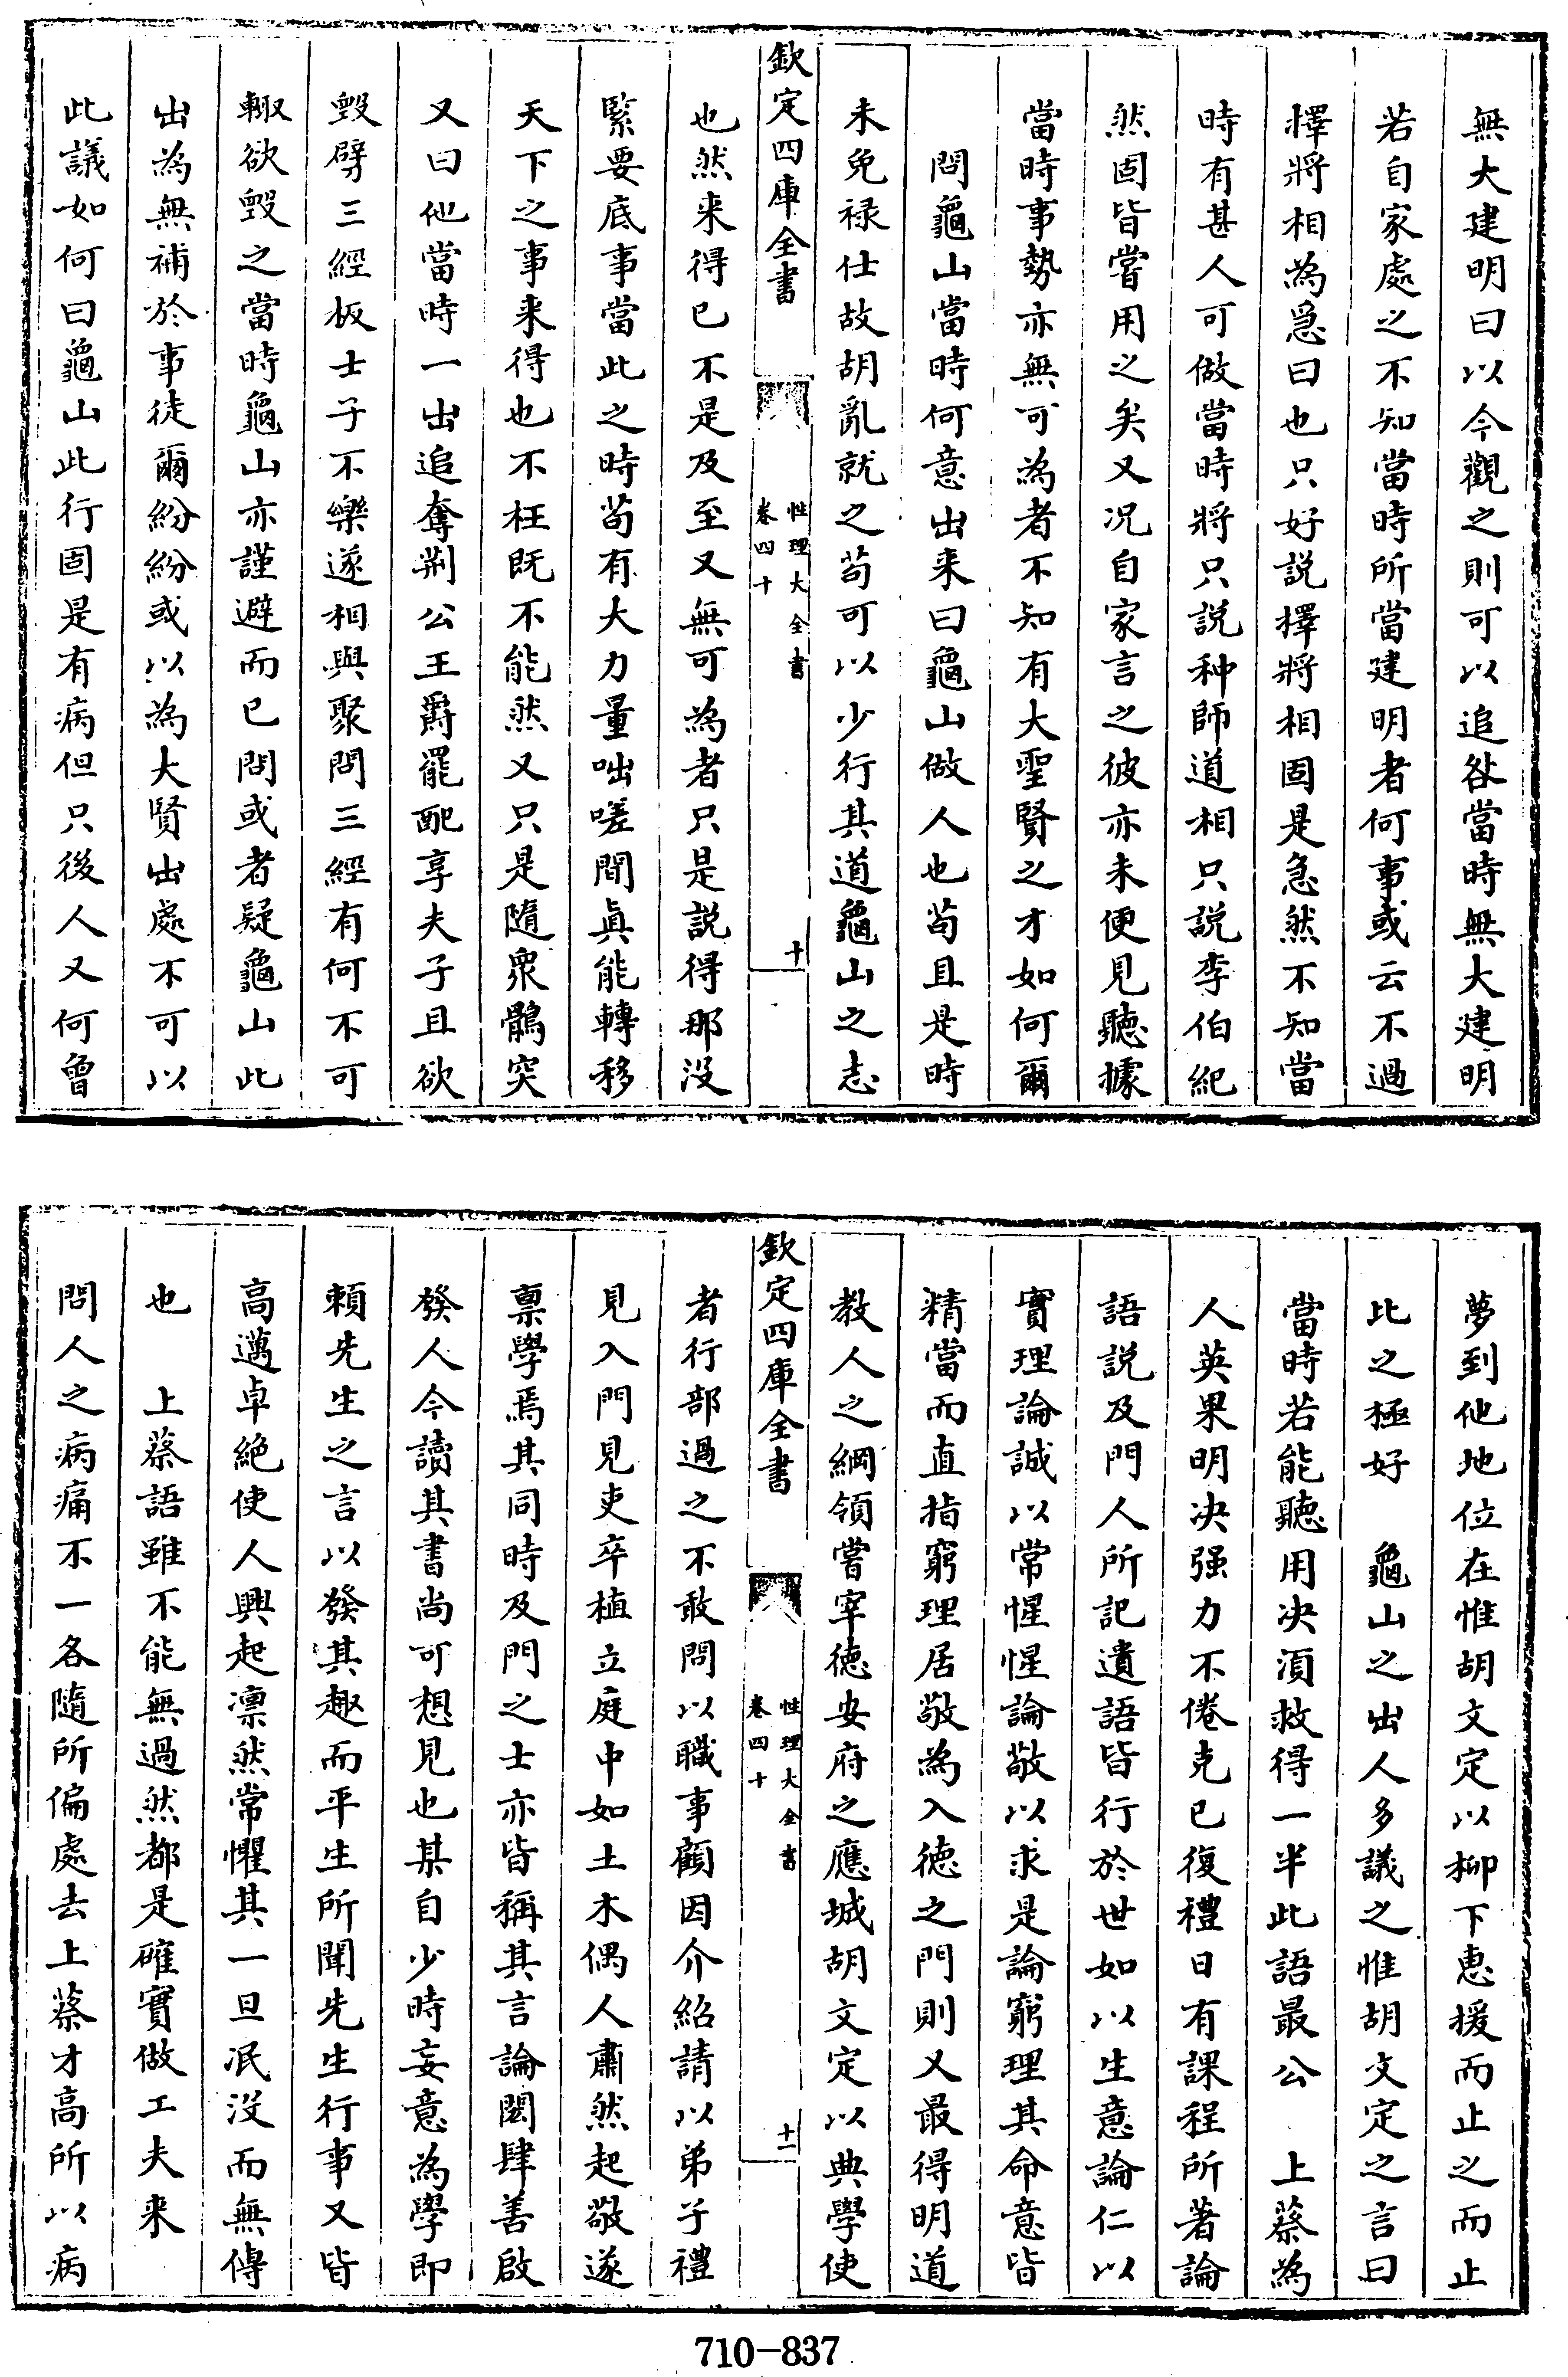 無大建明曰以今觀之則可以追咎當時無大建明
若自家處之不知當時所當建明者何事或云不過
擇將相為急曰也只好説擇將相固是急然不知當
時有甚人可做當時將只説种師道相只説李伯紀
然固皆嘗用之矣又况自家言之彼亦未便見聽據
當時事勢亦無可為者不知有大聖賢之才如何爾
問龜山當時何意出来曰龜山做人也茍且是時
未免禄仕故胡亂就之茍可以少行其道龜山之志
欽定四庫全書
性理大全書
卷四十
十
也然来得已不是及至又無可為者只是説得那没
緊要底事當此之時茍有大力量咄嗟間眞能轉移
天下之事来得也不枉既不能然又只是隨衆鶻突
又曰他當時一出追奪荆公王爵罷配享夫子且欲
毁劈三經板士子不樂遂相與聚問三經有何不可
輙欲毁之當時龜山亦謹避而已問或者疑龜山此
出為無補於事徒爾紛紛或以為大賢出處不可以
此議如何曰龜山此行固是有病但只後人又何曾
夢到他地位在惟胡文定以柳下惠援而止之而止
比之極好　龜山之出人多議之惟胡文定之言曰
當時若能聽用决湏救得一半此語最公　上蔡為
人英果明决强力不倦克已復禮日有課程所著論
語説及門人所記遺語皆行於世如以生意論仁以
實理論誠以常惺惺論敬以求是論窮理其命意皆
精當而直指窮理居敬為入徳之門則又最得明道
教人之綱領嘗宰徳安府之應城胡文定以典學使
欽定四庫全書
性理大全書
卷四十
十一
者行部過之不敢問以職事顧因介紹請以弟子禮
見入門見吏卒植立庭中如土木偶人肅然起敬遂
禀學焉其同時及門之士亦皆稱其言論閎肆善啟
發人今讀其書尚可想見也某自少時妄意為學即
賴先生之言以發其趣而平生所聞先生行事又皆
高邁卓絶使人興起凛然常懼其一旦泯沒而無傳
也　上蔡語雖不能無過然都是確實做工夫来
問人之病痛不一各隨所偏處去上蔡才高所以病
710-837